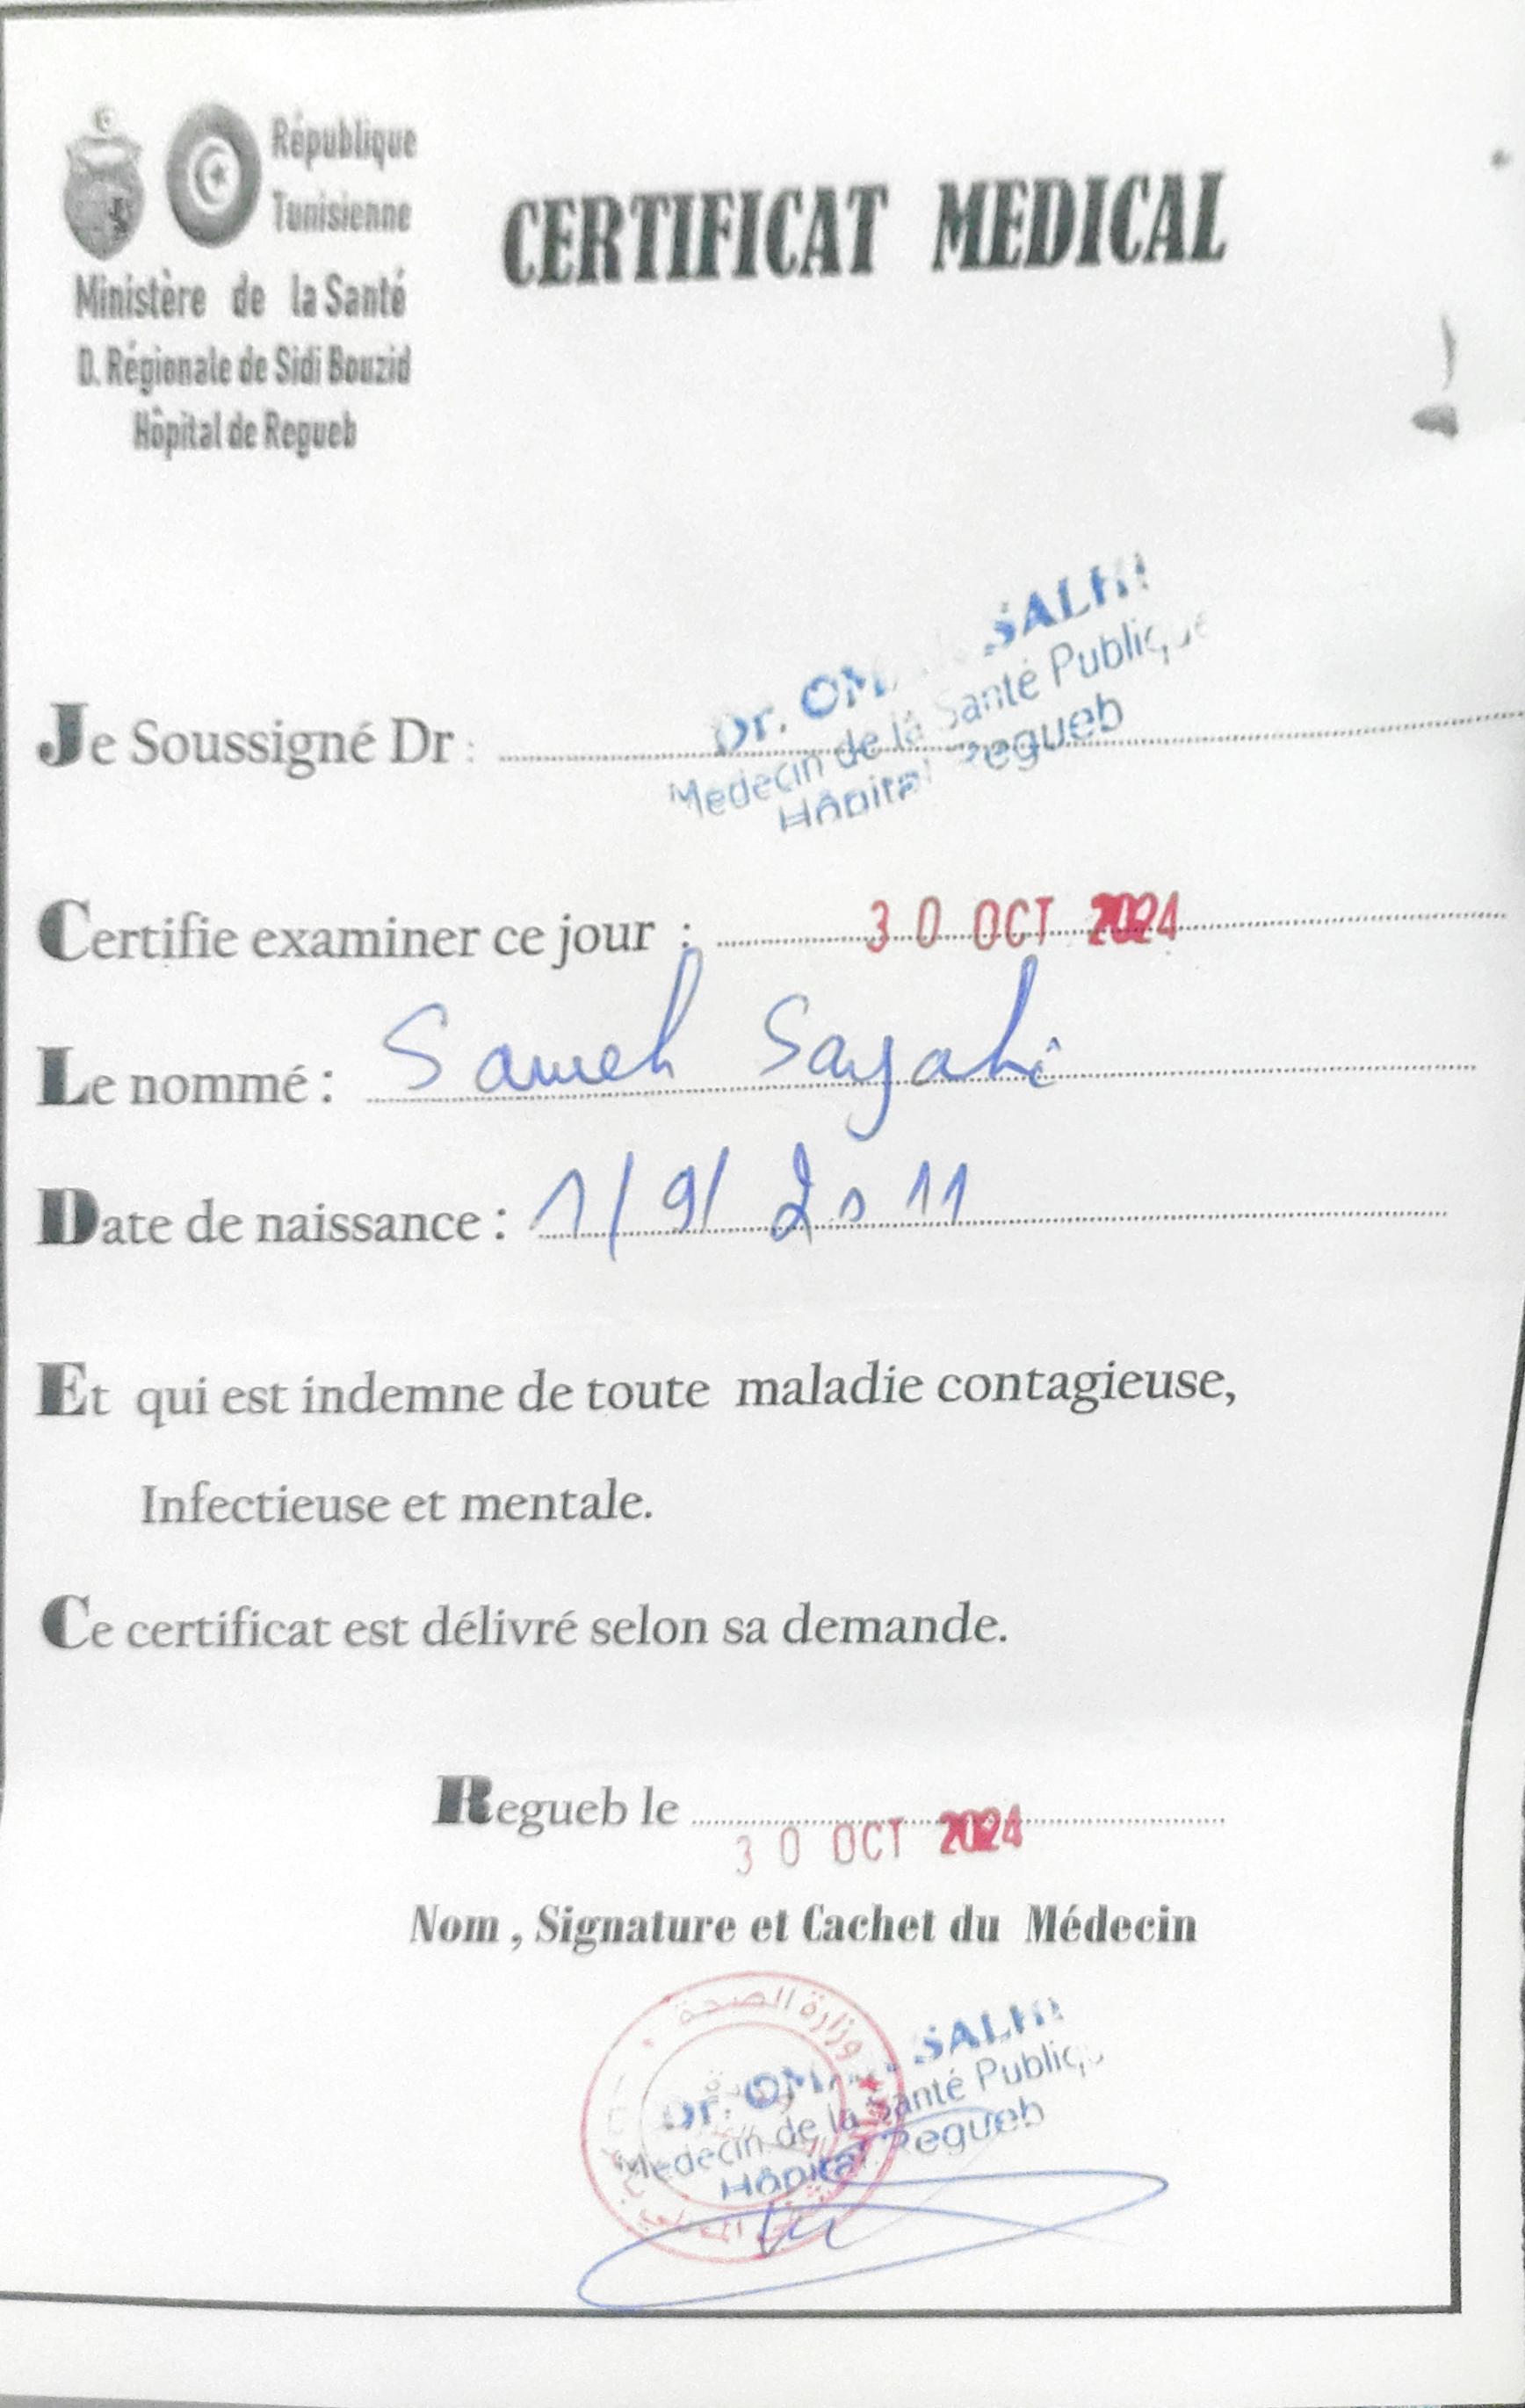 République
Tunisienne
Ministère de la Santé
D. Régionale de Sidi Bouzid
Hôpital de Regueb
CERTIFICAT MEDICAL
Je Soussigné Dr :
Dr. SALHI
Medecin de la Santé Publique
Hôpital Regueb
Certifie examiner ce jour : 30 OCT 2024
Le nommé : Sameh Sayahi
Date de naissance : 1/9/2011
Et qui est indemne de toute maladie contagieuse,
Infectieuse et mentale.
Ce certificat est délivré selon sa demande.
Regueb le 30 OCT 2024
Nom , Signature et Cachet du Médecin
وزارة الصحة
Dr. SALHI
Medecin de la Santé Publique
Hôpital Regueb